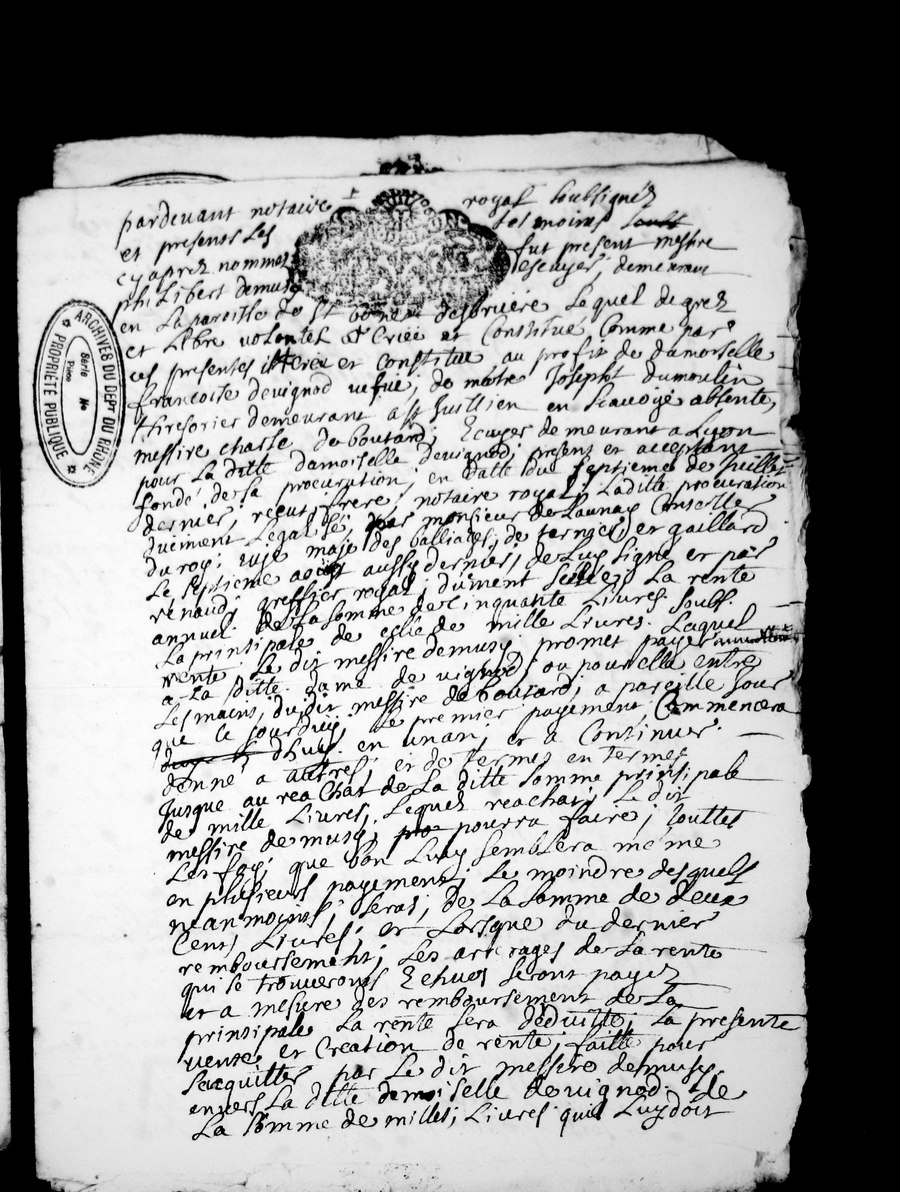 pardevant notaire royal soubsignéz
et presents Les tesmoins soubs
cy aprez nommez fut present messire
philibert demusy escuyer, demeurant
en La paroisse de St bonnet desbruiere Lequel de grez
et Libre volonté at Créé et Constitué Comme par
ces presentes, il Crée et constitue au profit de damoiselle
francoise devignod vefue, de maitre Joseph dumoulin
thresorier demeurant a St Juillien en Savoye absente,
messire charle de boutard; Ecuyer demeurant a Lyon
pour La ditte damoiselle devignod, present et acceptant
fondé de sa procuration, en datte du Septieme de juillet
dernier, receu, frere, notaire royal; Laditte procuration
duement Legalisé, par monsieur de Launay Conselle
du roy; juge maje des balliages, de ternier et gaillard
Le septieme aoust aussy dernier, de Luy signé et par
renaud, greffier royal; dument séelléz La rente
annuel de La somme de Cinquante Livres soubs
La principale de celle de mille Livres. Laquel
rente Le dit messire demusy promet payer
a La ditte dame de vignod, ou pour elle entre
Les mains, du dit messire de boutard; a pareille jour
que ce jourdhuy, Le premier payement Commencera
dhuy en un an, et a Continuer
donné a autres et de termes en termes
Jusque au reachat de La ditte somme principale
de mille Livres, Lequel reachat, Le dit
messire demusy, pourra faire; touttes
Les foy; que bon Luy semblera même
en plusieurs payement; Le moindre desquels
neanmoins; seras; de La somme de deux
Cens Livres; et Lorsque du dernier
remboursement; Les arrerages de La rente
qui se trouveront Echues seront payez
et a mesure des remboursement de La
principale La rente sera déduitte; La presente
vente et Creation de rente; faitte pour
sacquitter par Le dit messire demusy
envers La ditte demoiselle devignod de
La somme de milles; Livres quil Luy doit
ARCHIVES DU DEPT DU RHONE
PROPRIÉTÉ PUBLIQUE
Série No
Pièce